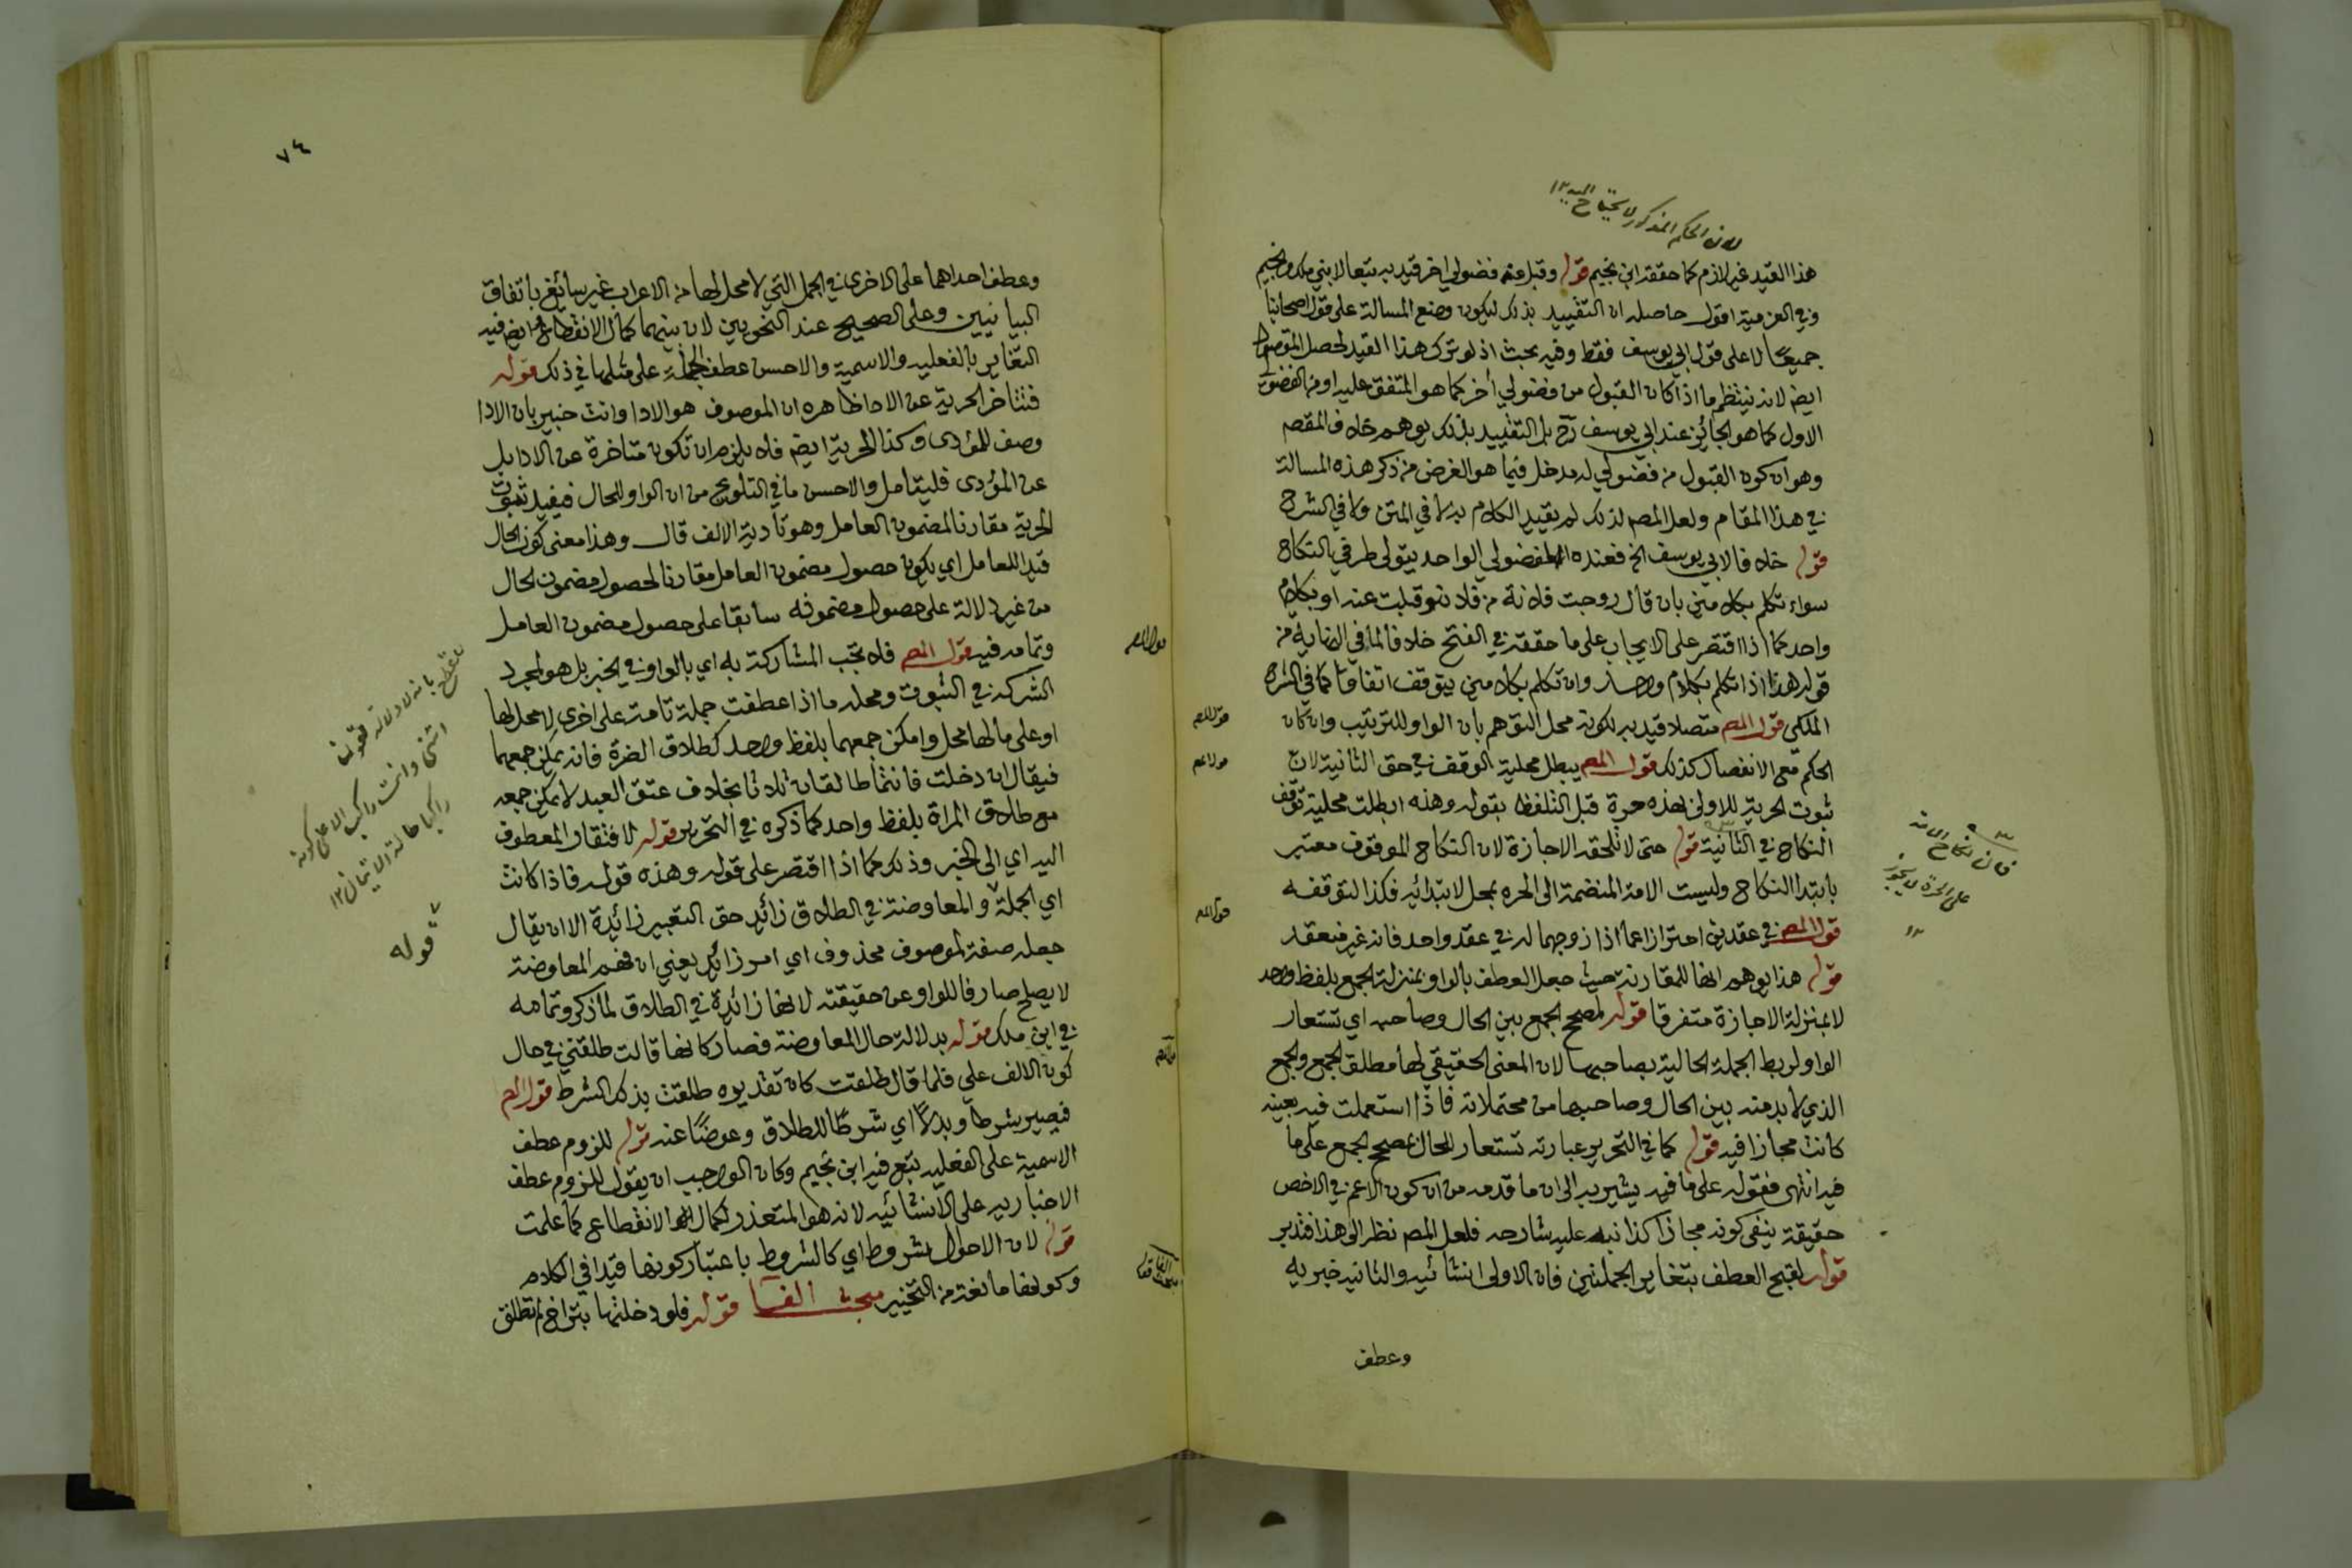 لان الحكم المذكور لا يحتاج اليه ١٢
هذا القيد غير لازم كما حققه ابن نجيم قوله وقبل عنه فضولي اخر قيد به تبعا لابني ملك ونجيم
وفي العزمية اقول حاصله ان التقييد بذلك ليكون وضع المسالة على قول اصحابنا
جميعًا لا على قول ابي يوسف فقط وفيه بحث اذ لو ترك هذا القيد لحصل المقصود
ايضا لانه ينتظم ما اذا كان القبول من فضولي أخر كما هو المتفق عليه او من الفضولي
الاول كما هو الجائز عند ابي يوسف رح بل التقييد بذلك يوهم خلاف المقصم
وهو ان كون القبول من فضولي له مدخل فيما هو الغرض من ذكر هذه المسالة
في هذا المقام ولعل المصم لذلك لم يقيد الكلام به لا في المتن ولا في الشرح
قوله خلافا لابي يوسف الخ فعنده الفضولي الواحد يتولى طرفي النكاح
سواء تكلم بكلامين بان قال زوجت فلانة من فلان وقبلت عنه او بكلام
واحد كما اذا اقتصر على الايجاب على ما حققه في الفتح خلافا لما في النهاية من
قوله هذا اذا تكلم بكلام واحد وان تكلم بكلامين يتوقف اتفاقا كما في الشرح
الملكي قول المصم متصلا قيد به لكونه محل التوهم بان الواو للترتيب وان كان
الحكم مع الانفصال كذلك قول المصم يبطل محلية الوقف في حق الثانية لان
ثبوت الحرية للاولى بهذه حرة قبل التلفظ بقوله وهذه ابطلت محلية توقف
النكاح في الثانية قوله حتى لا تلحقه الاجازة لان النكاح الموقوف معتبر
بابتدا النكاح وليست الامة المنضمة الى الحره بمحل لابتدائه فكذا لتوقفه
قول المصم في عقدين احترازا عما اذا زوجهما له في عقد واحد فانه غير منعقد
قوله هذا يوهم انها للمقارنة حيث جعل العطف بالواو بمنزلة الجمع بلفظ واحد
لا بمنزلة الاجازة متفرقا قوله لمصحح الجمع بين الحال وصاحبه اي تستعار
الواو لربط الجملة الحالية بصاحبها لان المعنى الحقيقي لها مطلق الجمع والجمع
الذي لا بد منه بين الحال وصاحبها من محتملاته فاذا استعملت فيه بعينه
كانت مجازا فيه قوله كما في التحرير عبارته تستعار للحال بمصحح الجمع على ما
فيه انتهى فقوله على ما فيه يشير به الى ان ما قدمه من ان كون الاعم في الاخص
حقيقة ينفي كونه مجازا كذا نبه عليه شارحه فلعل المصم نظر الى هذا فتدبر
قوله لقبح العطف بتغاير الجملتين فان الاولى انشائيه والثانيه خبريه
وعطف
فان نكاح الامة
على الحرة لا يجوز
١٢
٧٤
وعطف احداهما على الاخرى في الجمل التي لا محل لها من الاعراب غير سائغ باتفاق
البيانيين وعلى الصحيح عند النحويين لان بينهما كمال الانقطاع وايضا فيه
التغاير بالفعليه والاسمية والاحسن عطف الجملة على مثلها في ذلك قوله
فتتاخر الحرية عن الادا ظاهره ان الموصوف هو الادا وانت خبير بان الادا
وصف للمؤدى وكذا الحرية ايضا فلا يلزم ان تكون متاخرة عن الادا بل
عن المؤدى فليتامل والاحسن ما في التلويح من ان الواو للحال فيفيد ثبوت
الحرية مقارنا لمضمون العامل وهو تادية الالف قال وهذا معنى كون الحال
قيدا للعامل اي يكون حصول مضمون العامل مقارنا لحصول مضمون الحال
من غير دلالة على حصول مضمونه سابقا على حصول مضمون العامل
وتمامه فيه قول المصم فلا تجب المشاركة به اي بالواو في الخبر بل هو لمجرد
الشركة في الثبوت ومحله ما اذا عطفت جملة تامة على اخرى لا محل لها
او على ما لها محل وامكن جمعهما بلفظ واحد كطلاق الضرة فانه يمكن جمعهما
فيقال ان دخلت فانتما طالقان ثلاثا بخلاف عتق العبد لا يمكن جمعه
مع طلاق المراة بلفظ واحد كما ذكره في التحرير قوله لافتقار المعطوف
اليه اي الى الخبر وذلك كما اذا اقتصر على قوله وهذه قوله فاذا كانت
اي الجملة والمعاوضة في الطلاق زائد حق التعبير زائدة الا ان يقال
جعله صفة لموصوف محذوف اي امر زائد يعني ان فهم المعاوضة
لا يصلح صارفا للواو عن حقيقته لانها زائدة في الطلاق لما ذكر وتمامه
في ابن ملك قوله بدلالة حال المعاوضة فصار كانها قالت طلقني في حال
كون الالف علي فلما قال طلقت كان تقديره طلقت بذلك الشرط قول المصم
فيصير شرطا وبدلًا اي شرطًا للطلاق وعوضًا عنه قوله للزوم عطف
الاسمية على الفعليه تبع فيه ابن نجيم وكان الواجب ان يقول للزوم عطف
الاخباريه على الانشائيه لانه هو المتعذر لكمال الانقطاع كما علمت
قوله لان الاحوال شروط اي كالشروط باعتبار كونها قيدا في الكلام
وكونها مانعة من التخيير مبحث الفا قوله فلو دخلتها بتراخ لم تطلق
بانه لا دلالة لقولنا
ائتني وانت راكب الا على كونه
راكبا حالة الاتيان ١٢
قوله